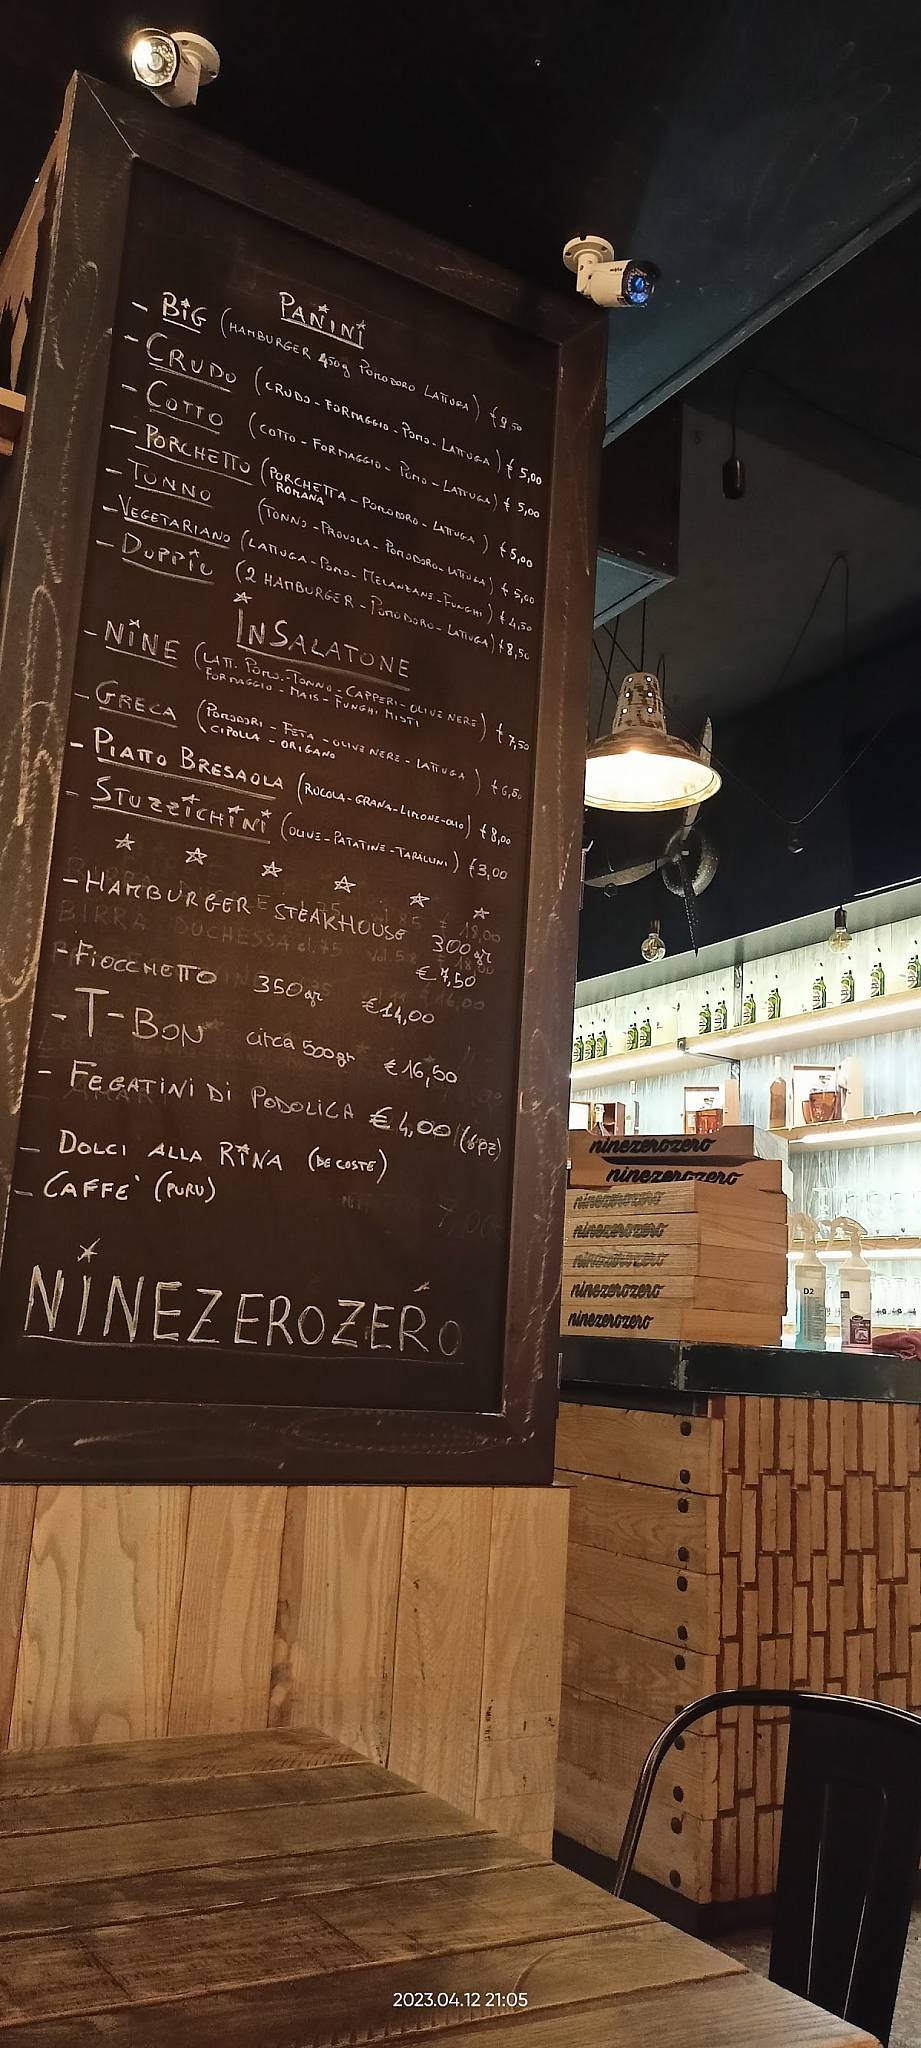 PANINI
- BIG (HAMBURGER 450g POMODORO LATTUGA) € 9,50
- CRUDO (CRUDO - FORMAGGIO - POMO - LATTUGA) € 5,00
- COTTO (COTTO - FORMAGGIO - POMO - LATTUGA) € 5,00
- PORCHETTO (PORCHETTA ROMANA - POMODORO - LATTUGA) € 5,00
- TONNO (TONNO - PROVOLA - POMODORO - LATTUGA) € 5,00
- VEGETARIANO (LATTUGA - POMO - MELANZANE - FUNGHI) € 4,50
- DOPPIO (2 HAMBURGER - POMODORO - LATTUGA) € 8,50
INSALATONE
- NINE (LATT. POMO. - TONNO - CAPPERI - OLIVE NERE) € 7,50
FORMAGGIO - MAIS - FUNGHI MISTI
- GRECA (POMODORI - FETA - OLIVE NERE - LATTUGA) € 6,50
CIPOLLA - ORIGANO
- PIATTO BRESAOLA (RUCOLA - GRANA - LIMONE - OLIO) € 8,00
- STUZZICHINI (OLIVE - PATATINE - TARALLINI) € 3,00
- HAMBURGER STEAKHOUSE 300gr
€ 7,50
- FIOCCHETTO 350gr € 14,00
- T-BON circa 500gr € 16,50
- FEGATINI DI PODOLICA € 4,00 (6pz)
- DOLCI ALLA RINA (DE COSTE)
- CAFFE' (PURU)
NINEZEROZERO
BIRRA DUCHESSA cl.75
ninezerozero
ninezerozero
ninezerozero
ninezerozero
ninezerozero
ninezerozero
ninezerozero
D2
2023.04.12 21:05